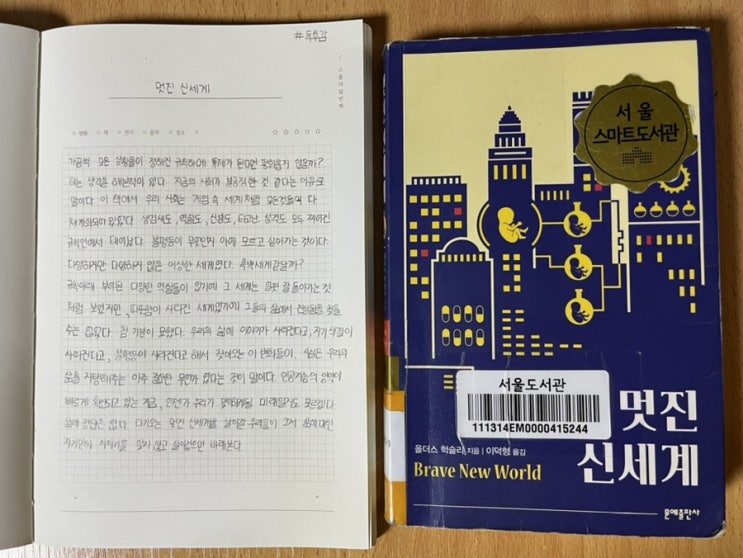 #독후감
멋진 신세계
영화 책 전시 음악 장소
가끔씩 모든 상황들이 정해진 규칙하에 통제가 된다면 평화롭지 않을까?
하는 생각을 해본적이 있다. 지금의 사회가 불공정한 것 같다는 이유로
말이다. 이 책에서 우리 사회는 게임 속 세계처럼 모든것들이 다
체계화되어 있었다. 생김새도, 역할도, 신분도, 타고난 성격도 모두 짜여진
규칙안에서 태어났다. 불평등이 무엇인지 아예 모르고 살아가는 것이다.
다양하지만 다양하지 않은 이상한 세계였다.
규칙아래 부여된 다양한 역할들이 있기에 그 세계는 잘 돌아가는 것
처럼 보였지만, 사라진 세계였기에 그들의 삶에서 찾을
수는 없었다. 참 기분이 묘했다. 우리의 삶에 이야기가 사라진다고,
사라진다고, 불평등이 사라진다고 해서 찾아오는 이 변화들이. 우리의
삶을 지탱해주는 아주 중요한 무언가 있다는 것이 말이다. 인공지능의 영역이
빠르게 확산되고 있는 지금, 언젠가 우리가 맞이하게될 미래일지도 모르겠다.
삶에 정답은 없다. 다가오는 멋진 신세계를 살아갈 우리들이 그저 삶에 대한
자기만의 이야기를 잊지 않고 살아갔으면 바래본다.
서울
스마트도서관
서울도서관
111314EM0000415244
멋진
신세계
올더스 헉슬리 지음 | 이덕형 옮김
Brave New World
문예출판사